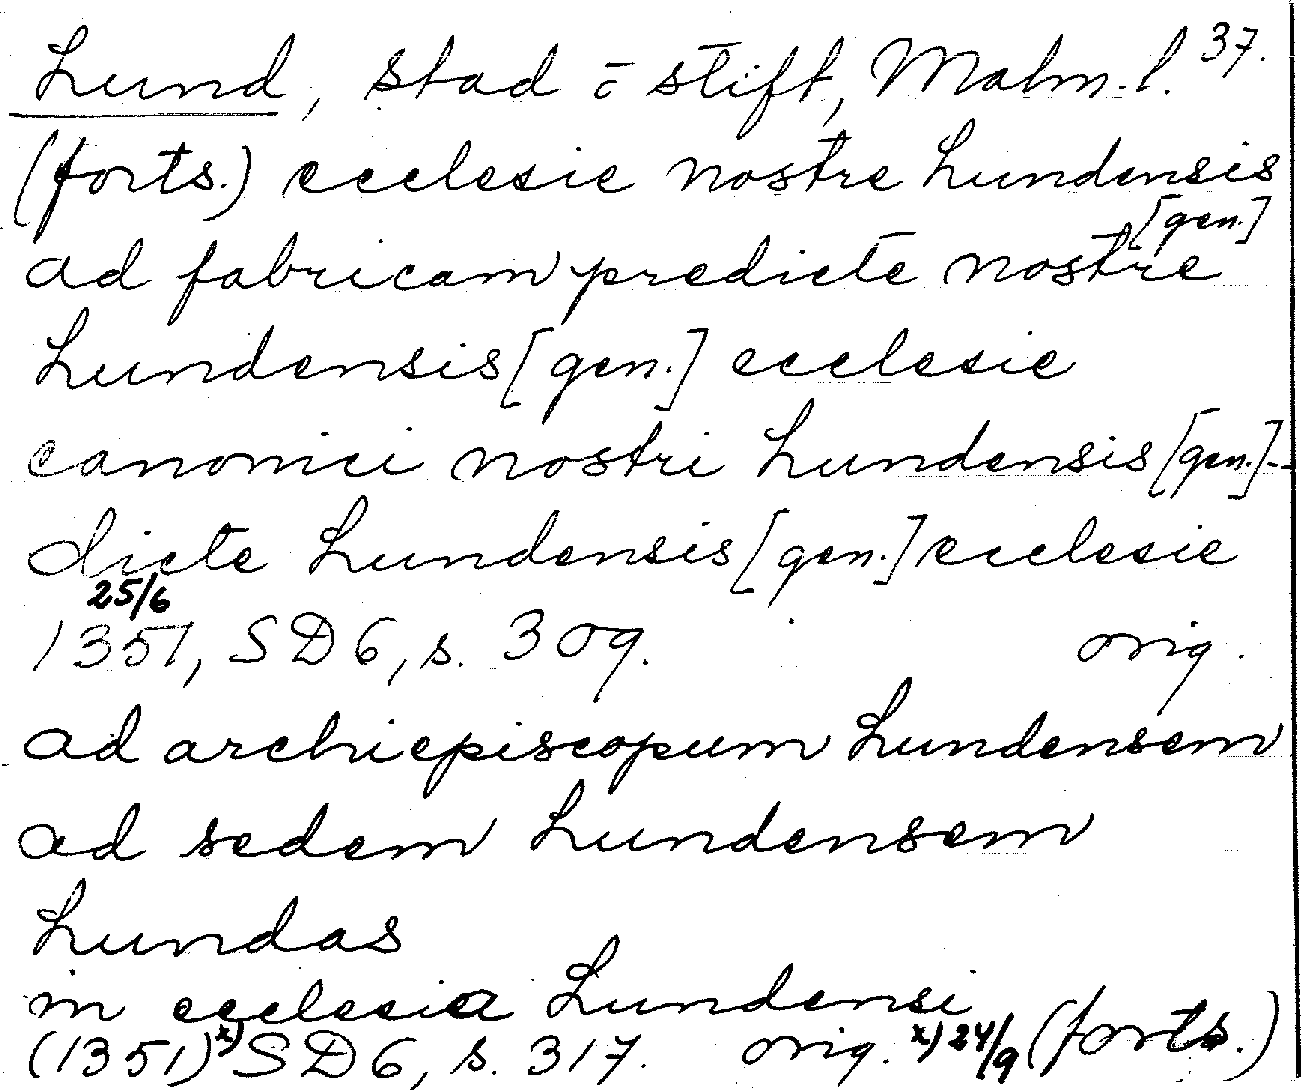 Lund, stad o stift, Malm. l. 37.
(forts.) ecclesie nostre Lundensis
[gen.]
ad fabricam predicte nostre
Lundensis [gen.] ecclesie
canonici nostri Lundensis [gen.]-
dicte Lundensis [gen.] ecclesie
25/6
1351, SD 6, s. 309. orig.
ad archiepiscopum Lundensem
ad sedem Lundensem
Lundas
in ecclesia Lundensi
(1351)x) SD 6, s. 317. orig. x) 24/9 (forts.)